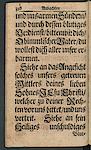 Andachten
und unsern armen Sünders
und durch sein blutiges
Verdienst bitten wir dich
Himmlischer Vater, du
wollest dich aller unser er-
barmen.
Siehe an das Angesicht
solches unsers getreuen
Mittlers deines lieben
Sohnes JEsu Christi
welcher zu deiner Rech-
ten vor uns bittet, und uns
vertritt. Siehe an sein
Heiliges unschuldiges
Blut